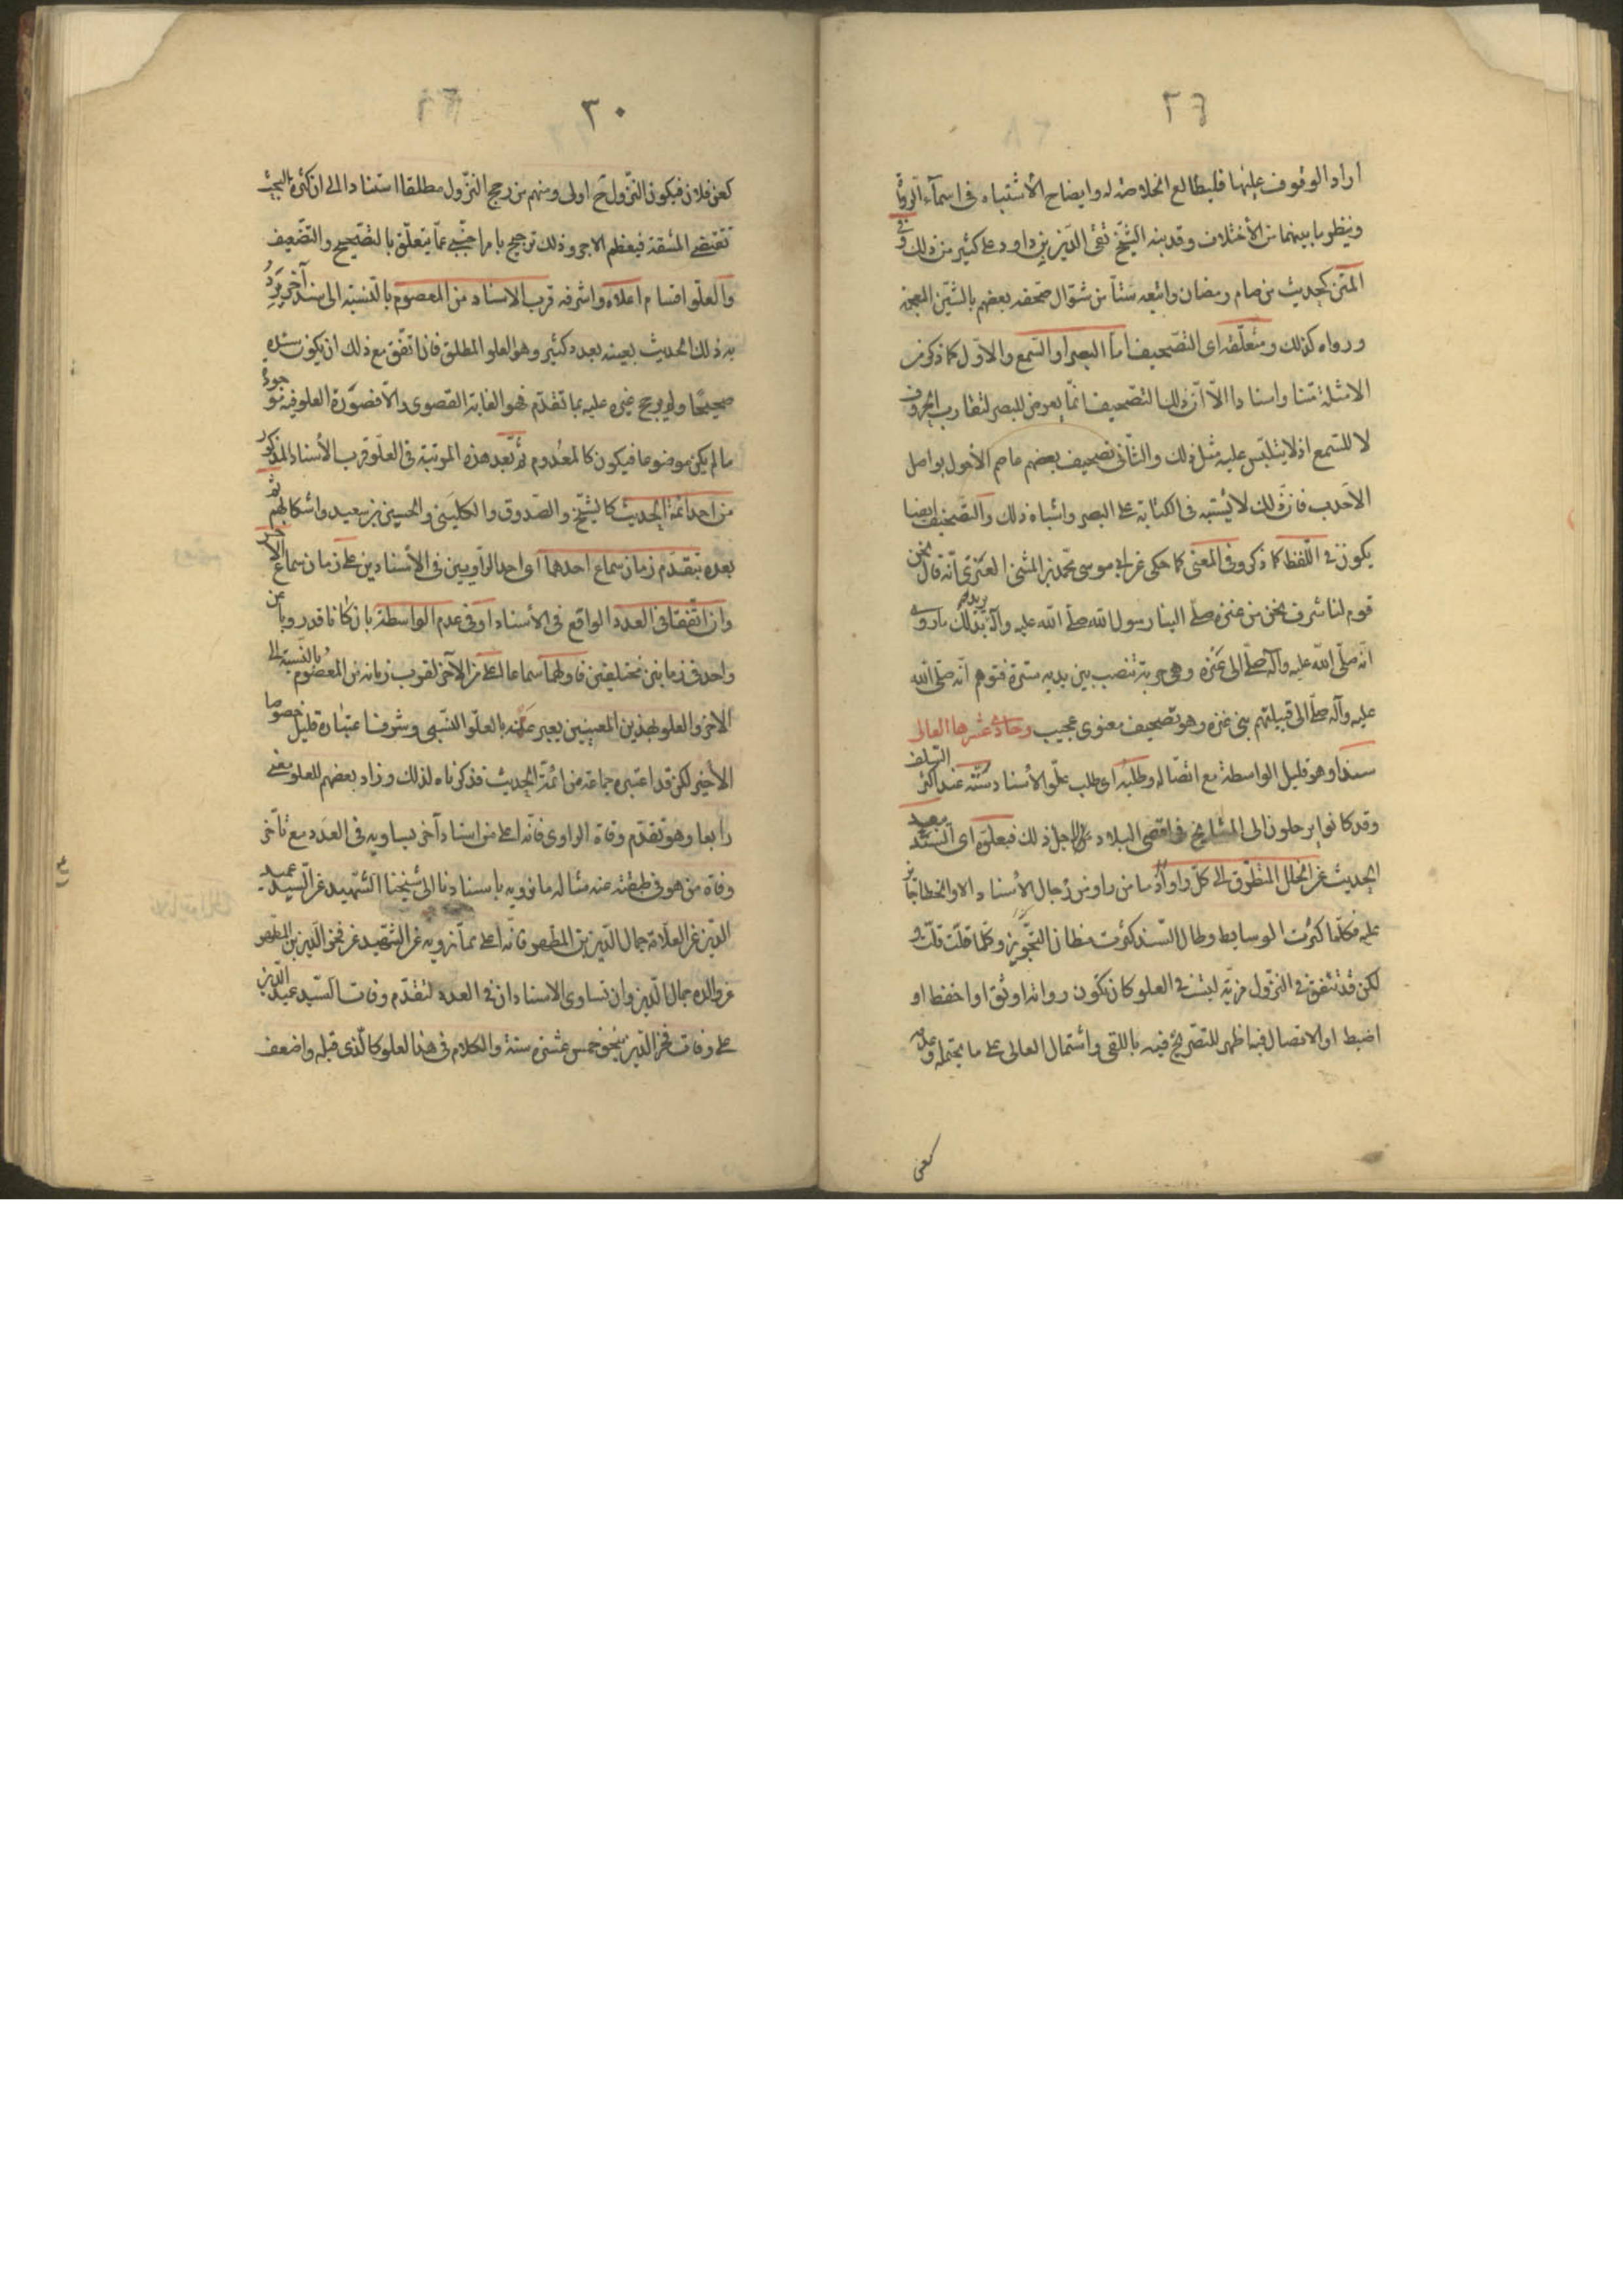 ٢٩
اراد الوقوف عليها فليطالع الخلاصة له وايضاح الأشتباه فى اسمآء الرواة
وينظر ما بينهما من الأختلاف وقد نبه الشيخ تقى الدّين بن داود على كثير من ذلك وفى
المتن كحديث من صام رمضان واتبعه ستّاً من شوّال صحفه بعضهم بالشّين المعجمة
ورواه كذلك ومتعلّقه اى التّصحيف امّا البصر او السّمع والاوّل كما ذكر من
الامثلة متنا واسنادا الاّ انّ ذلك التّصحيف انّما يعرض للبصر لتقارب الحروف
لا للسّمع اذ لا يتلبّس عليه مثل ذلك والثّانى تصحيف بعضهم عاصم الأحول بواصل
الاحدب فان ذلك لا يشتبه فى الكتابة على البصر واشباه ذلك والتّصحيف ايضا
يكون فى اللّفظ كما ذكر وفى المعنى كما حكى عن ابى موسى محمّد بن المثنى العنزى انّه قال نحن
قوم لنا شرف نحن من عنزه صلّى الينا رسول الله صلّى الله عليه وآله يريد بذلك ما روى
انّه صلّى الله عليه وآله صلّى الى عنزه وهى حربة تنصب بين يديه سترة فتوهم انّه صلّى الله
عليه وآله صلّى الى قبيلتهم بنى عنزه وهو تصحيف معنوى عجيب وحادى عشرها العالى
سندا وهو قليل الواسطة مع اتّصاله وطلبه اى طلب علوّ الأسناد سنّة عند اكثر السّلف
وقد كانوا يرحلون الى المشايخ فى اقصى البلاد لاجل ذلك فبعلوّه اى السّند يبعد
الحديث عن الخلل المتطرّق الى كلّ راو اذ ما من راو من رجال الأسناد الا والخطا جائز
عليه فكلّما كثرت الوسايط وطال السّند كثرت مظان التّجويز وكلّما قلّت قلّت و
لكن قد تتّفق فى النّزول مزيّة ليست فى العلو كان تكون رواته اوثق او احفظ او
اضبط او الاتصال فيه اظهر للتّصريح فيه باللقى واشتمال العالى على ما يحتمله وعدمه
كعن
٣٠
كعن فلان فيكون النّزول ح اولى ومنهم من رجح النّزول مطلقا استنادا الى ان كثرة البحث
تقتضى المشقة فيعظم الاجر وذلك ترجيح بامر اجنبى عمّا يتعلّق بالتّصحيح والتّضعيف
والعلو اقسام اعلاه واشرفه قرب الاسناد من المعصوم بالنّسبة الى سند آخر يرد
به ذلك الحديث بعينه بعدد كثير وهو العلو المطلق فان اتّفق مع ذلك ان يكون سنده
صحيحا ولم يرجح غيره عليه بما تقدّم فهو الغاية القصوى والاّ فصورة العلو فيه موجودة
ما لم يكن موضوعا فيكون كالمعدوم ثم بعد هذه المرتبة فى العلوّ قرب الأسناد المذكور
من احد ائمّة الحديث كالشّيخ والصّدوق والكلينى والحسين بن سعيد واشكالهم ثم
بعده بتقدّم زمان سماع احدهما اى احد الرّاويين فى الأسنادين على زمان سماع الآخر
وان اتّفقا فى العدد الواقع فى الأسناد او فى عدم الواسطة بان كانا قد رويا عن
واحد فى زمانين مختلفين فاولهما سماعا اعلى من الآخر لقرب زمانه من المعصوم بالنّسبة الى
الآخر والعلو بهذين المعنيين يعبر عنه بالعلوّ النّسبى وشرف اعتباره قليل خصوصا
الأخير لكن قد اعتبره جماعة من ائمّة الحديث فذكرناه لذلك وزاد بعضهم للعلو معنى
رابعا وهو تقدّم وفاة الراوى فانّه اعلى من اسناد آخر يساويه فى العدد مع تأخّر
وفاة من هو فى طبقته عنه مثاله ما نرويه باسنادنا الى شيخنا الشّهيد عن السّيد عميد
الدّين عن العلاّمة جمال الدّين بن المطهر فانّه اعلى ممّا نرويه عن الشّهيد عن فخر الدّين بن المطهر
عن والده جمال الدّين وان تساوى الاسنادان فى العدد لتقدّم وفات السّيد عميد الدّين
على وفات فخر الدّين بنحو خمس عشرة سنة والكلام فى هذا العلو كالّذى قبله واضعف